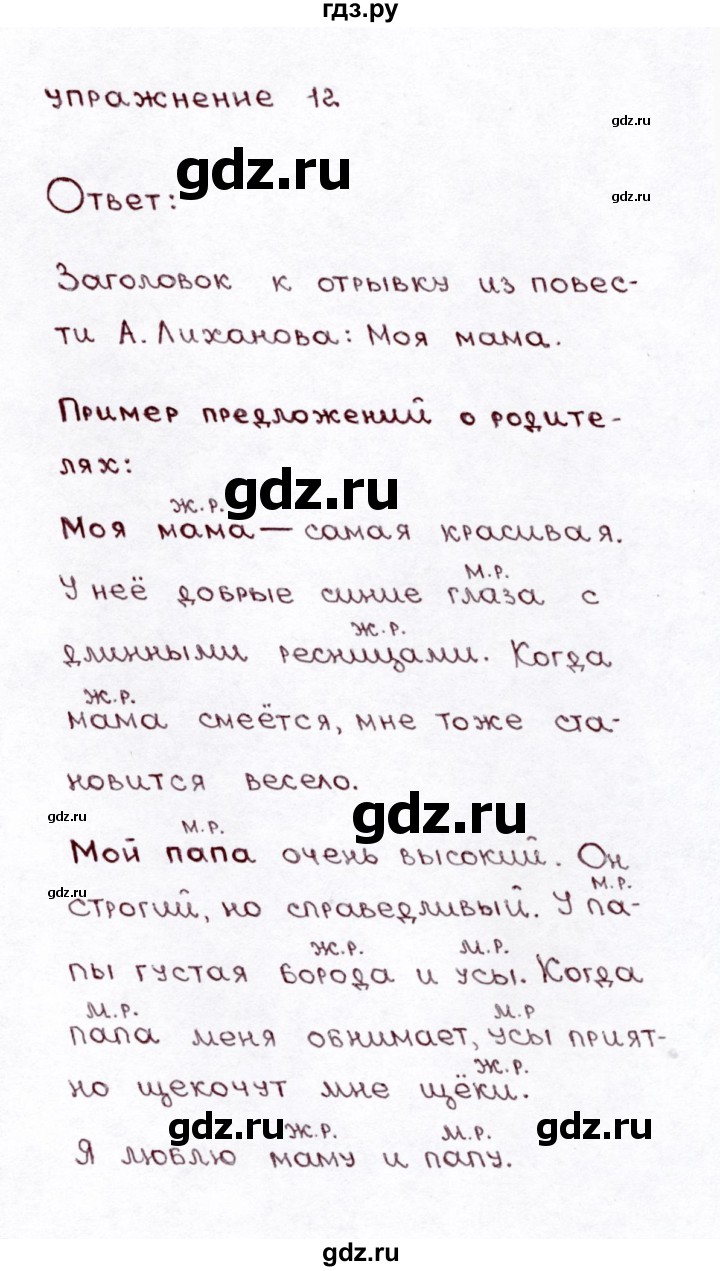 гдз.ру
упражнение 12
gdz.ru
gdz.ru
Ответ:
gdz.ru
Заголовок к отрывку из повес-
ти А. Лиханова: Моя мама.
Пример предложений о родите-
лях:
gdz.ru
ж.р.
Моя мама — самая красивая.
м.р.
У неё добрые синие глаза с
ж.р.
длинными ресницами. Когда
ж.р.
мама смеётся, мне тоже ста-
новится весело.
gdz.ru
gdz.ru
м.р.
Мой папа очень высокий. Он
gdz.ru
м.р.
строгий, но справедливый. У па-
ж.р. м.р.
пы густая борода и усы. Когда
м.р. м.р
папа меня обнимает, усы прият-
ж.р.
но щекочут мне щёки.
gdz.ru gdz.ru
ж.р. м.р.
Я люблю маму и папу.
gdz.ru